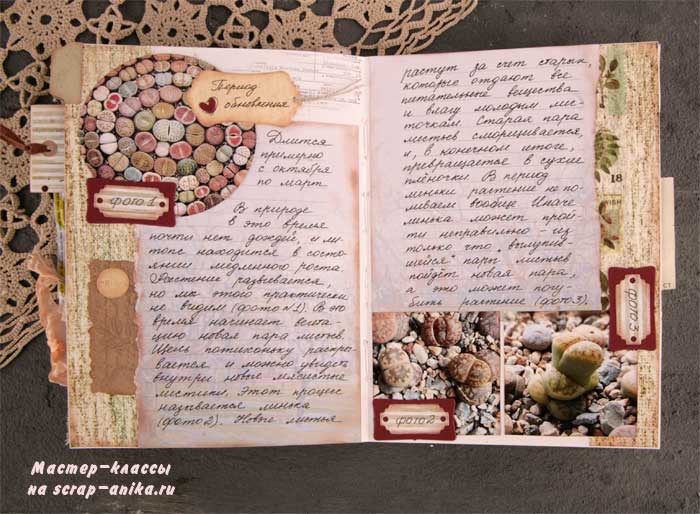 Период
обновления
Длится
примерно
с октября
по март.
фото 1
В природе
в это время
почти нет дождей, и ли-
топс находится в состо-
янии медленного роста.
Растение развивается,
но мы этого практически
не видим (фото №1). В это
время начинает вегета-
цию новая пара листьев.
Щель потихоньку раскры-
вается и можно увидеть
внутри новые мясистые
листики. Этот процесс
называется линька
(фото 2). Новые листья
растут за счет старых,
которые отдают все
питательные вещества
и влагу молодым лис-
точкам. Старая пара
листьев сморщивается,
и, в конечном итоге,
превращается в сухие
плёночки. В период
линьки растение не по-
ливаем вообще. Иначе
линька может прой-
ти неправильно - из
только что "вылупив-
шейся" пары листьев
пойдёт новая пара,
а это может погу-
бить растение (фото 3).
18
фото 3
СТ
фото 2
Мастер-классы
на scrap-anika.ru